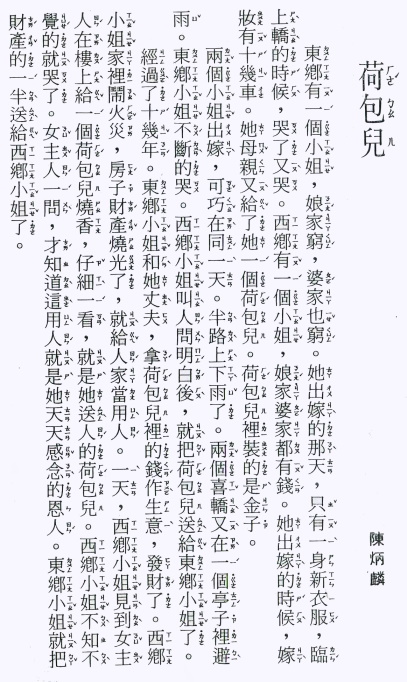 荷包兒
陳炳麟
東鄉有一個小姐，娘家窮，婆家也窮。她出嫁的那天，只有一身新衣服，臨
上轎的時候，哭了又哭。西鄉有一個小姐，娘家婆家都有錢。她出嫁的時候，嫁
妝有十幾車。她母親又給了她一個荷包兒。荷包兒裡裝的是金子。
兩個小姐出嫁，可巧在同一天。半路上下雨了。兩個喜轎又在一個亭子裡避
雨。東鄉小姐不斷的哭。西鄉小姐叫人問明白後，就把荷包兒送給東鄉小姐了。
經過了十幾年。東鄉小姐和她丈夫，拿荷包兒裡的錢作生意，發財了。西鄉
小姐家裡鬧火災，房子財產燒光了，就給人家當用人。一天，西鄉小姐見到女主
人在樓上給一個荷包兒燒香，仔細一看，就是她送人的荷包兒。西鄉小姐不知不
覺的就哭了。女主人一問，才知道這用人就是她天天感念的恩人。東鄉小姐就把
財產的一半送給西鄉小姐了。